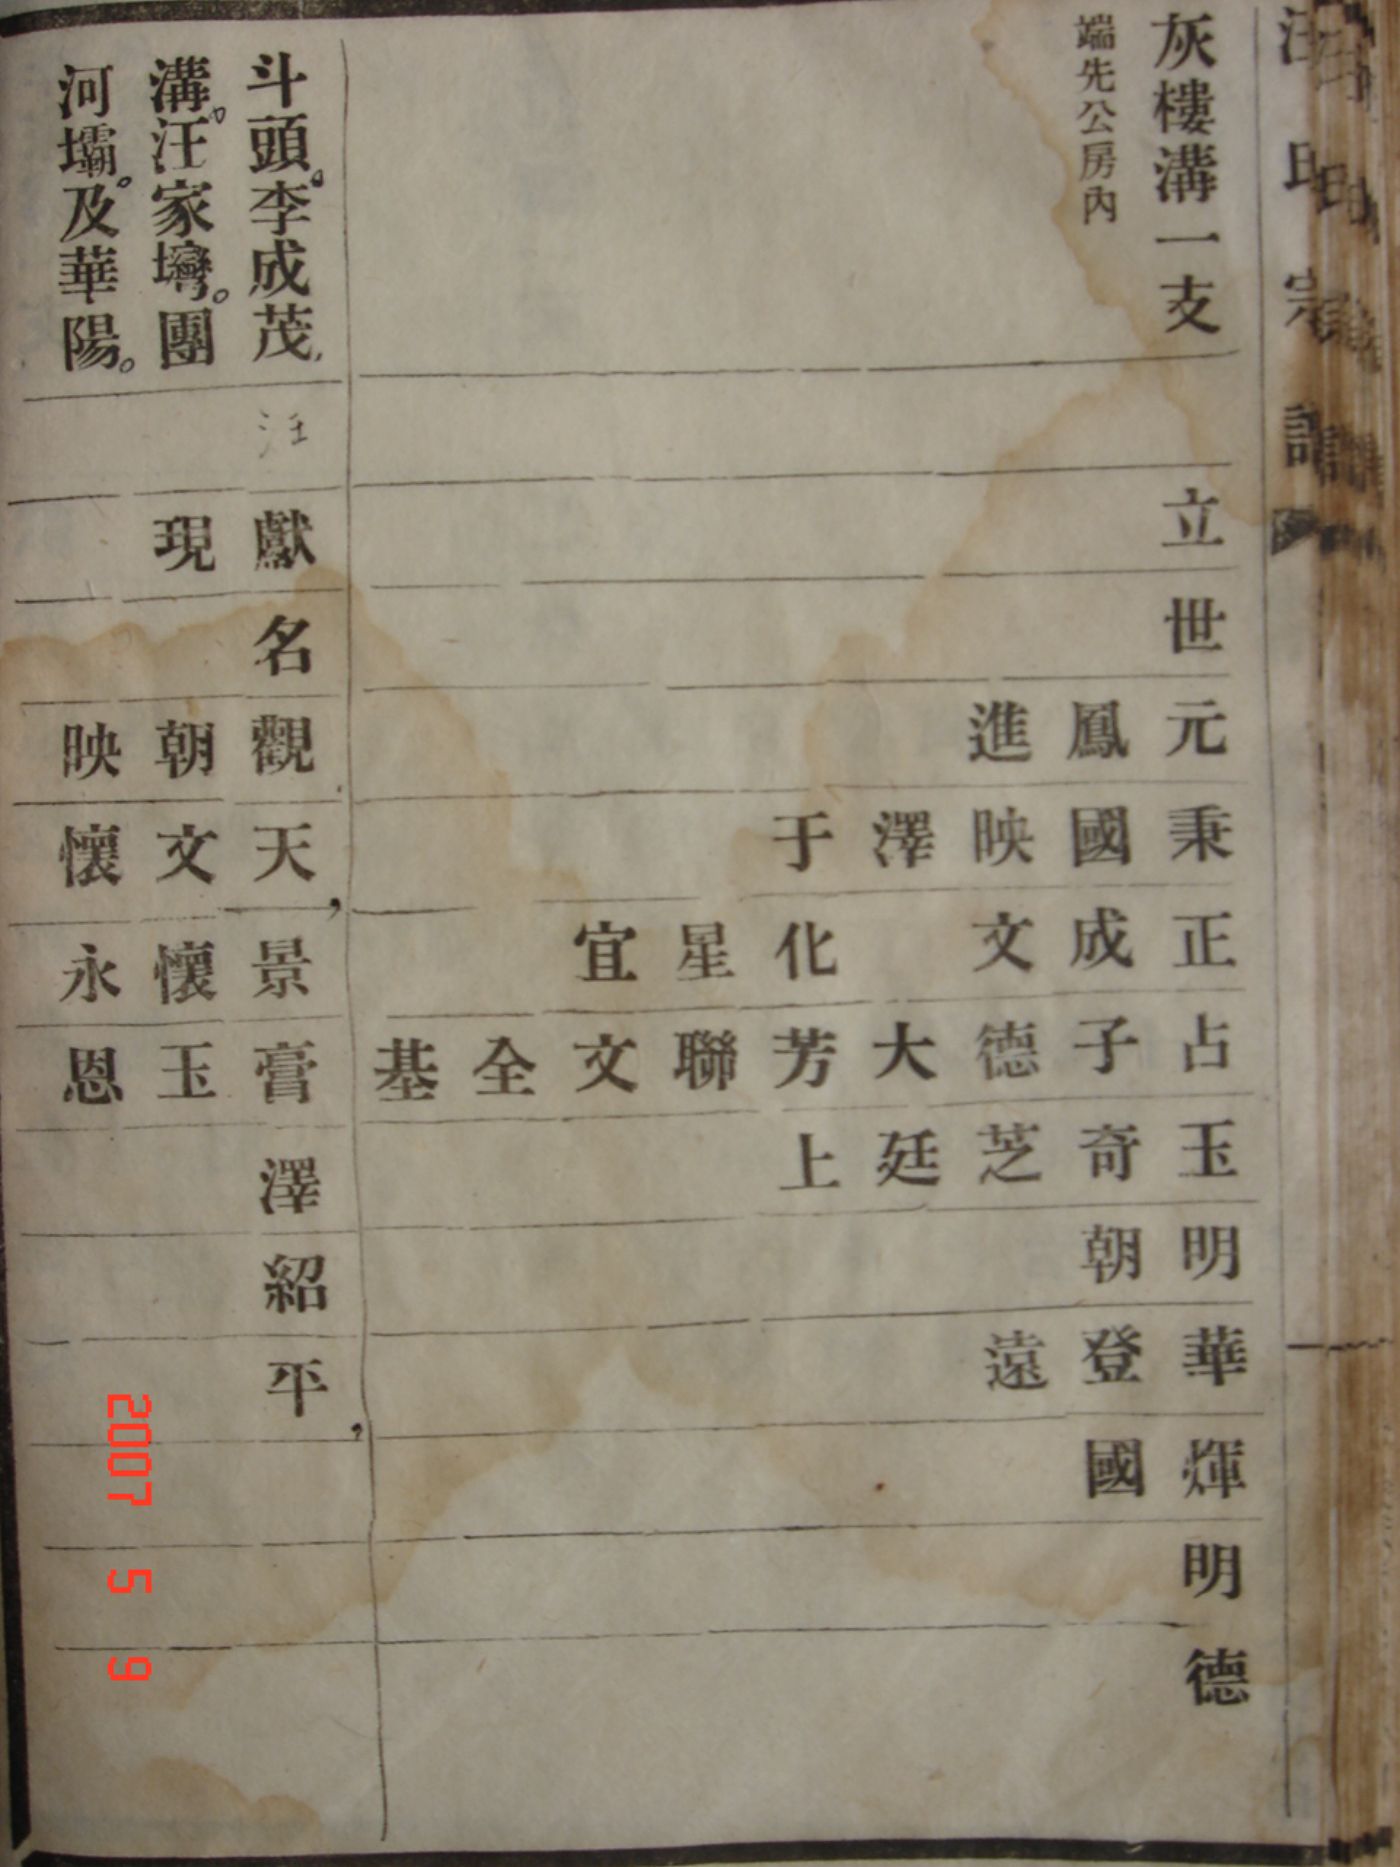 汪氏宗譜
灰樓溝一支 立世元秉正占玉明華輝明德
端先公房內 鳳國成子奇朝登國
進映文德芝 遠
澤 大廷
于化芳上
星聯
宜文
全
基
斗頭。李成茂、 汪 獻名觀天，景膏澤紹平，
溝。汪家壪。團 現 朝文懷玉
河壩。及華陽。 映懷永恩
2007 5 9